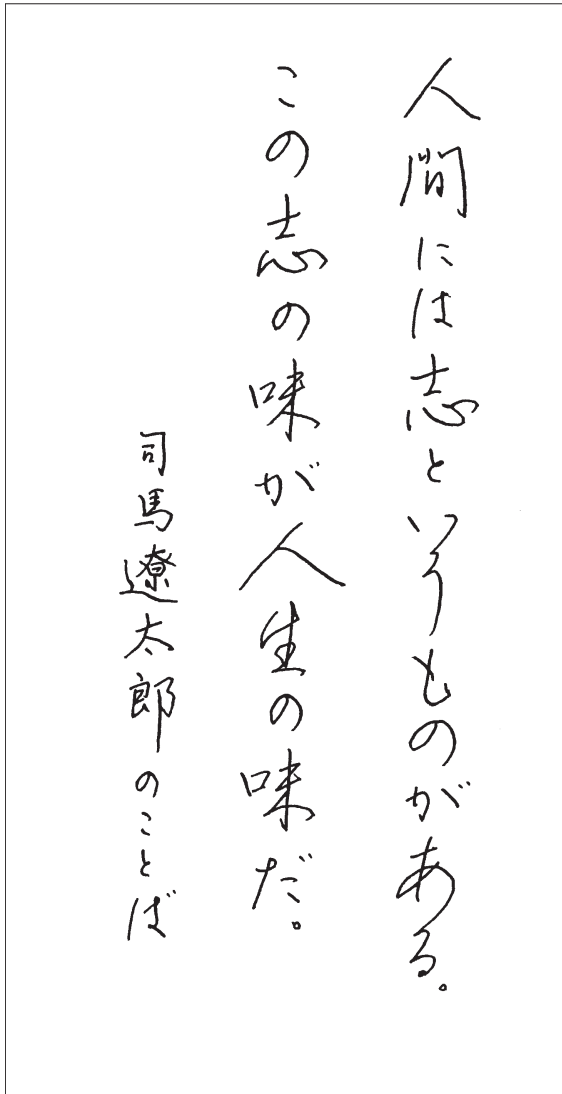 人間には志というものがある。
この志の味が人生の味だ。
司馬遼太郎のことば